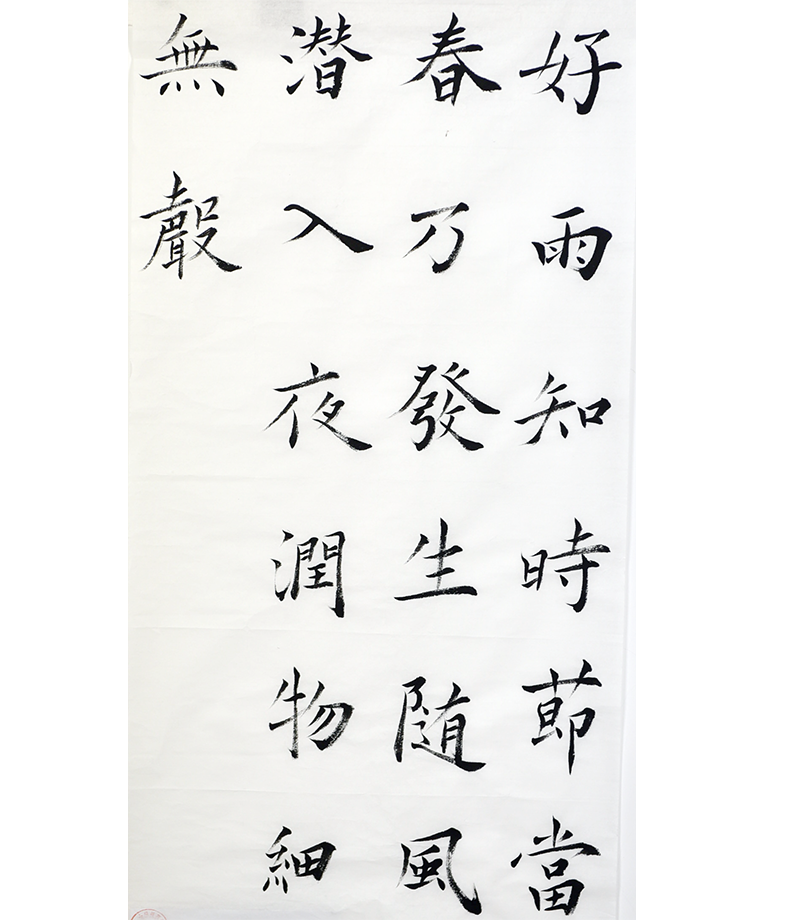 好雨知時節當
春乃發生随風
潜入夜潤物細
無聲